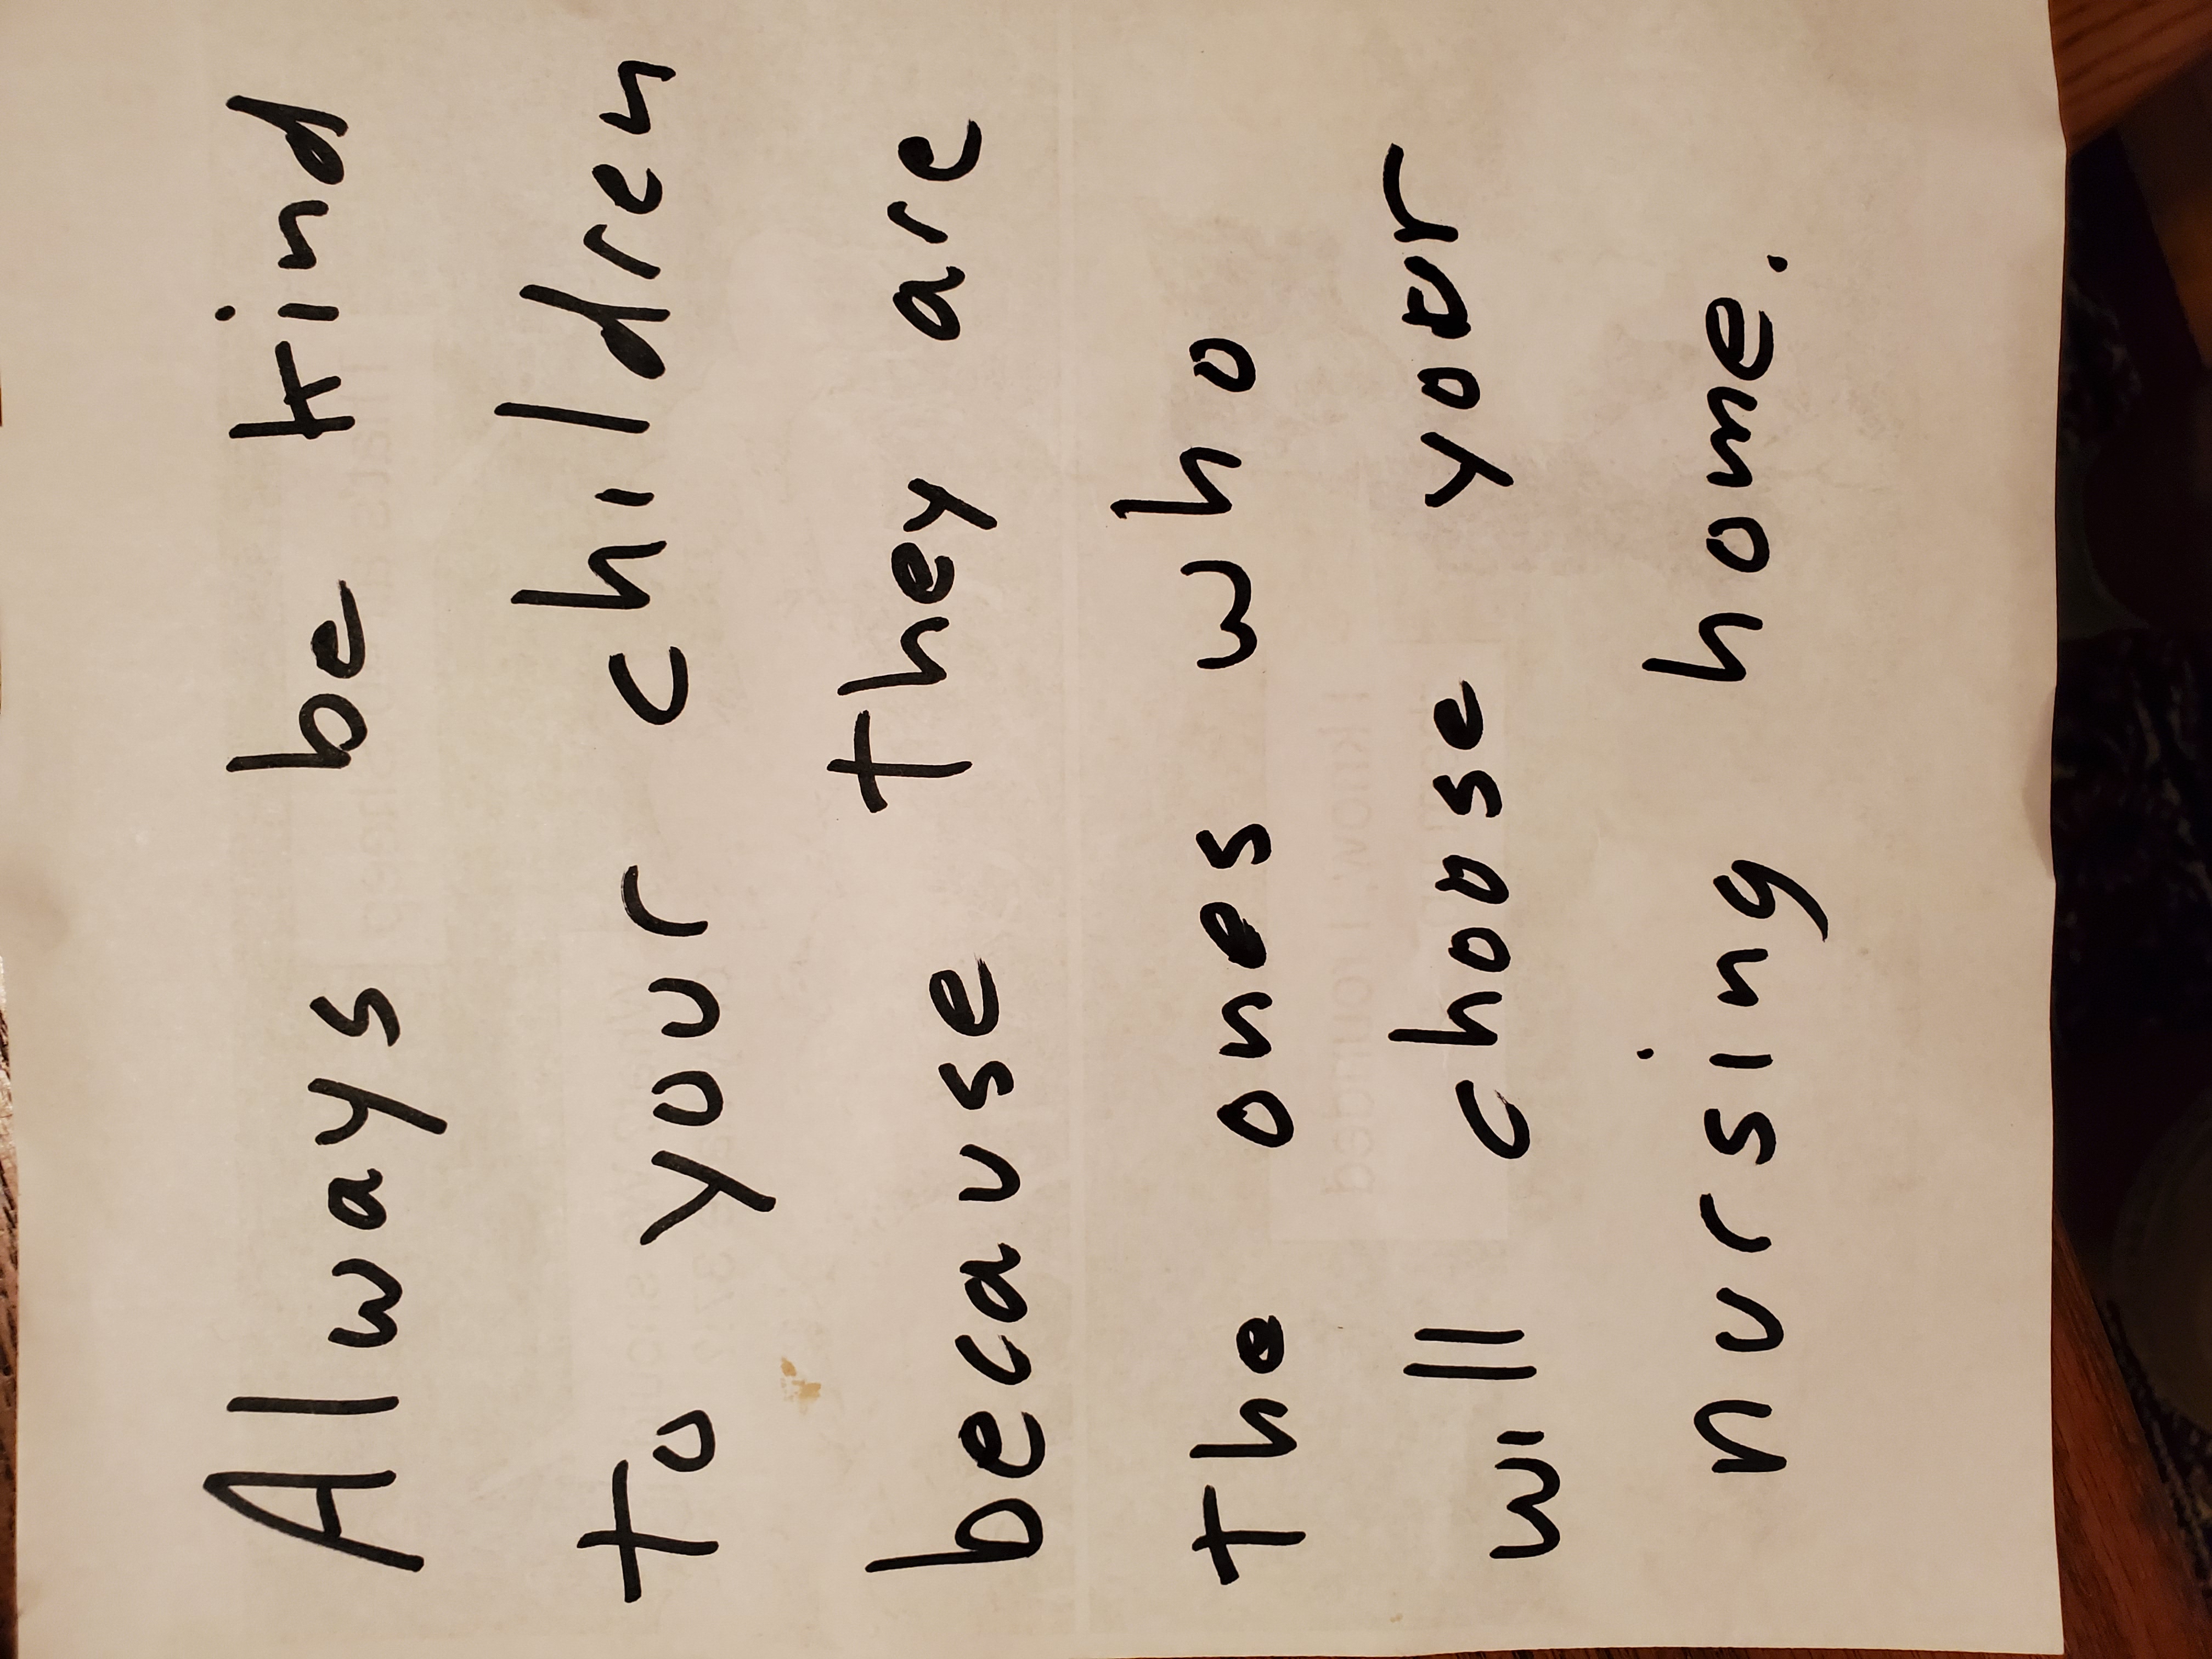 Always be kind
to your children
because they are
the ones who
will choose your
nursing home.